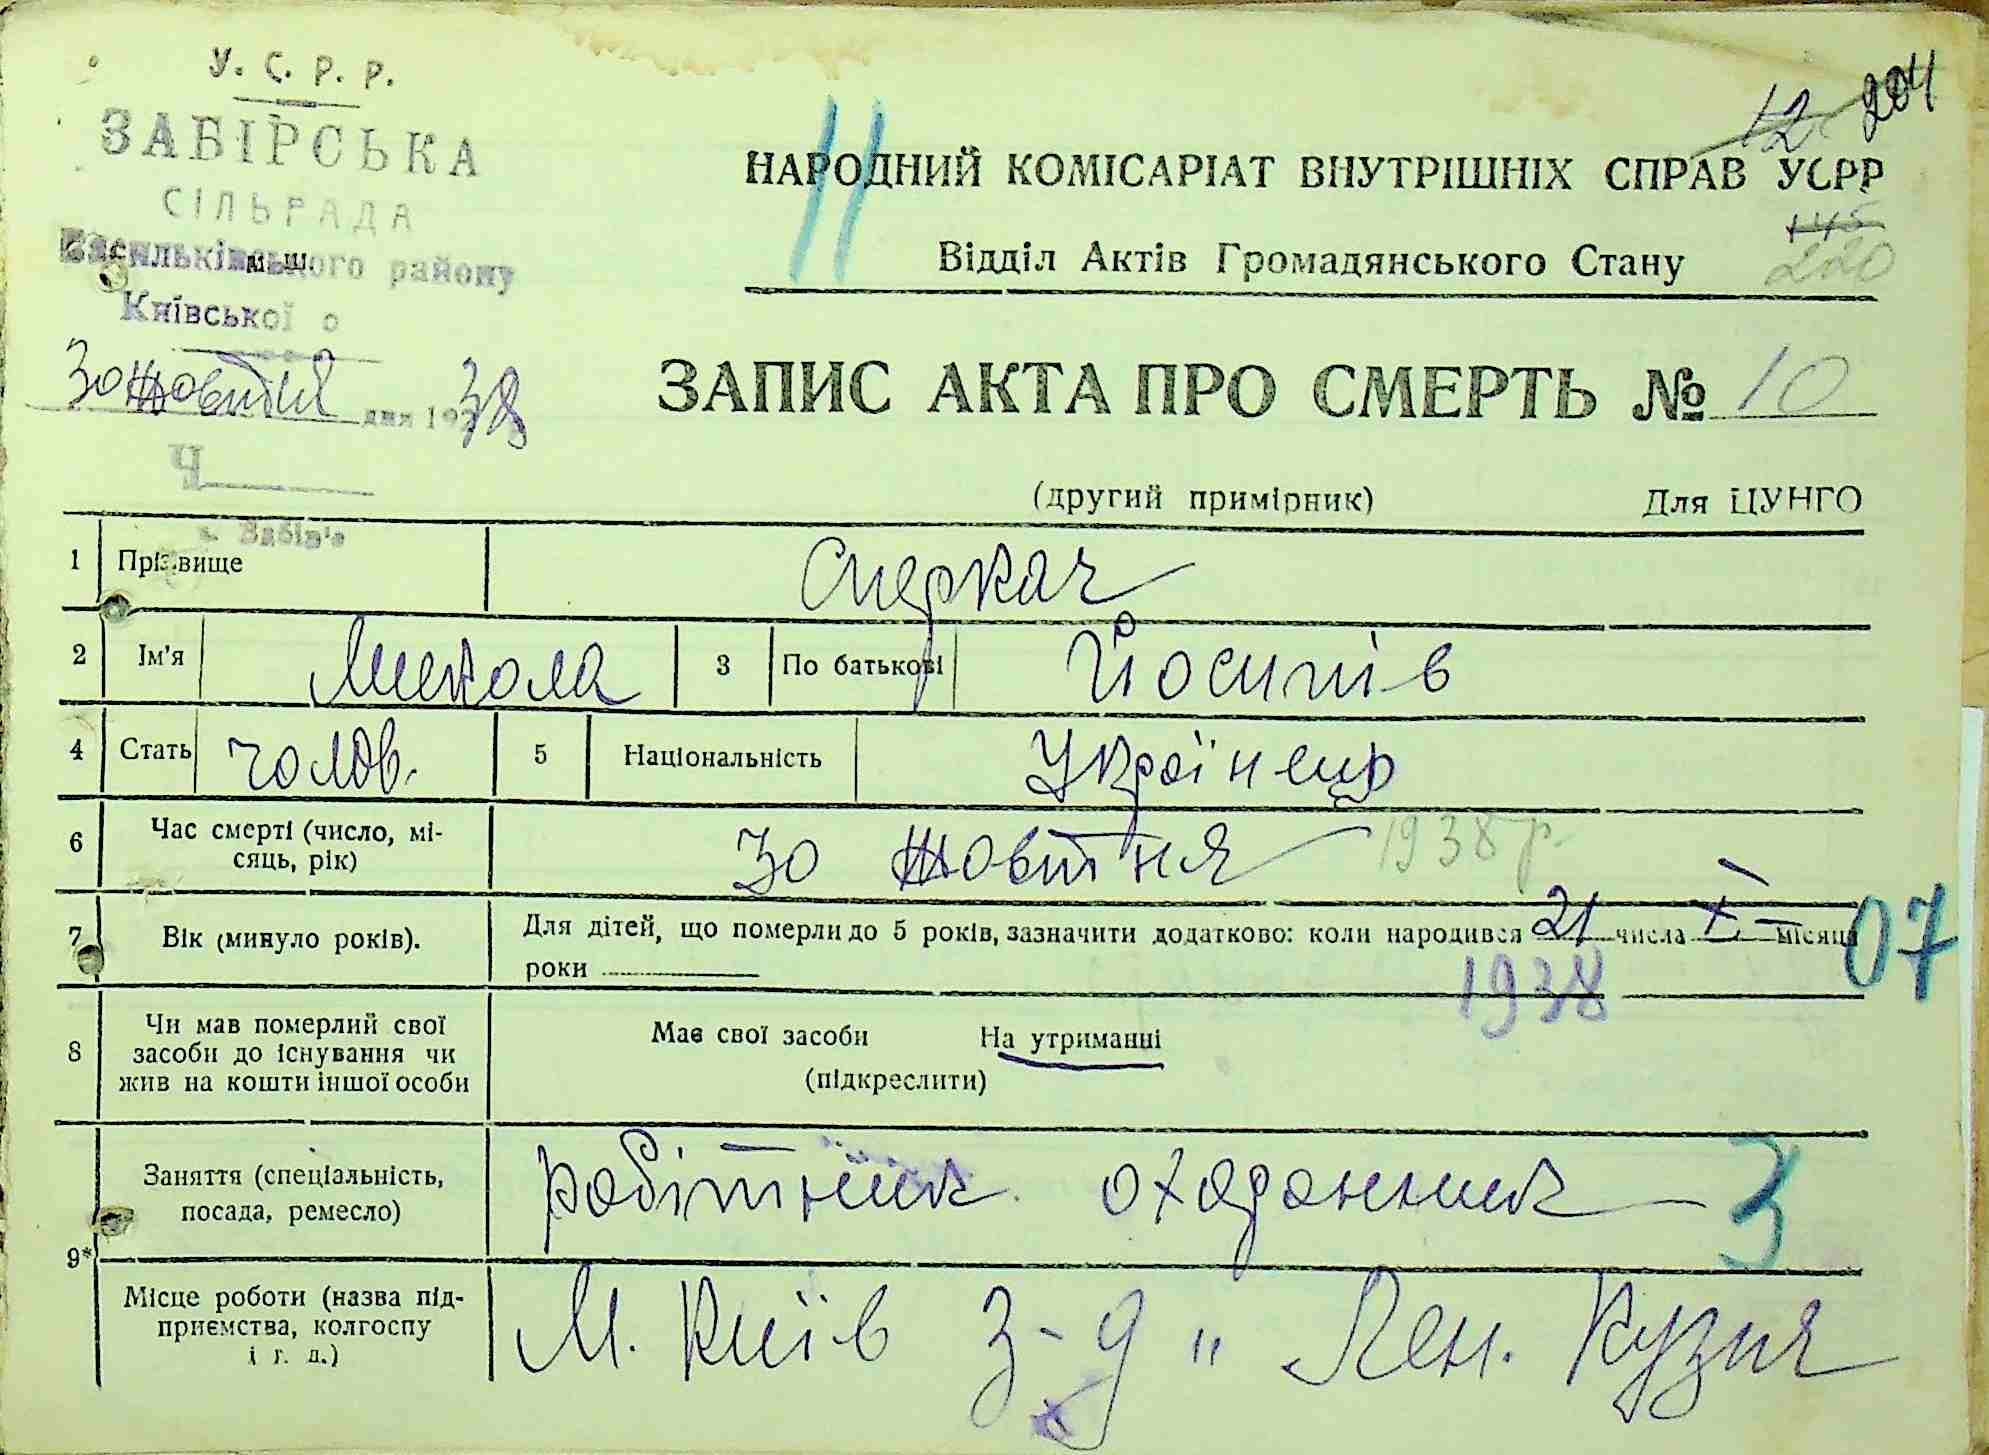 У. С. Р. Р.
ЗАБІРСЬКА
СІЛЬРАДА
Васильківського району
Київської о
30 Жовтня дня 1938
Ч
с. Забір'є
12 204
НАРОДНИЙ КОМІСАРІАТ ВНУТРІШНІХ СПРАВ УСРР
11
145
Відділ Актів Громадянського Стану 220
ЗАПИС АКТА ПРО СМЕРТЬ № 10
(другий примірник) Для ЦУНГО
1 Прізвище Снеркач
2 Ім'я Микола 3 По батькові Йосипів
4 Стать чолов. 5 Національність Українець
6 Час смерті (число, мі-
сяць, рік) 30 Жовтня 1938 р.
7 Вік (минуло років). Для дітей, що померли до 5 років, зазначити додатково: коли народився 21 числа X місяця 07
роки 1938
8 Чи мав померлий свої
засоби до існування чи
жив на кошти іншої особи
Має свої засоби На утриманні
(підкреслити)
9* Заняття (спеціальність,
посада, ремесло) робітник 3
Місце роботи (назва під-
приємства, колгоспу
і т. д.) М. Київ З-д „ Лен. Кузня